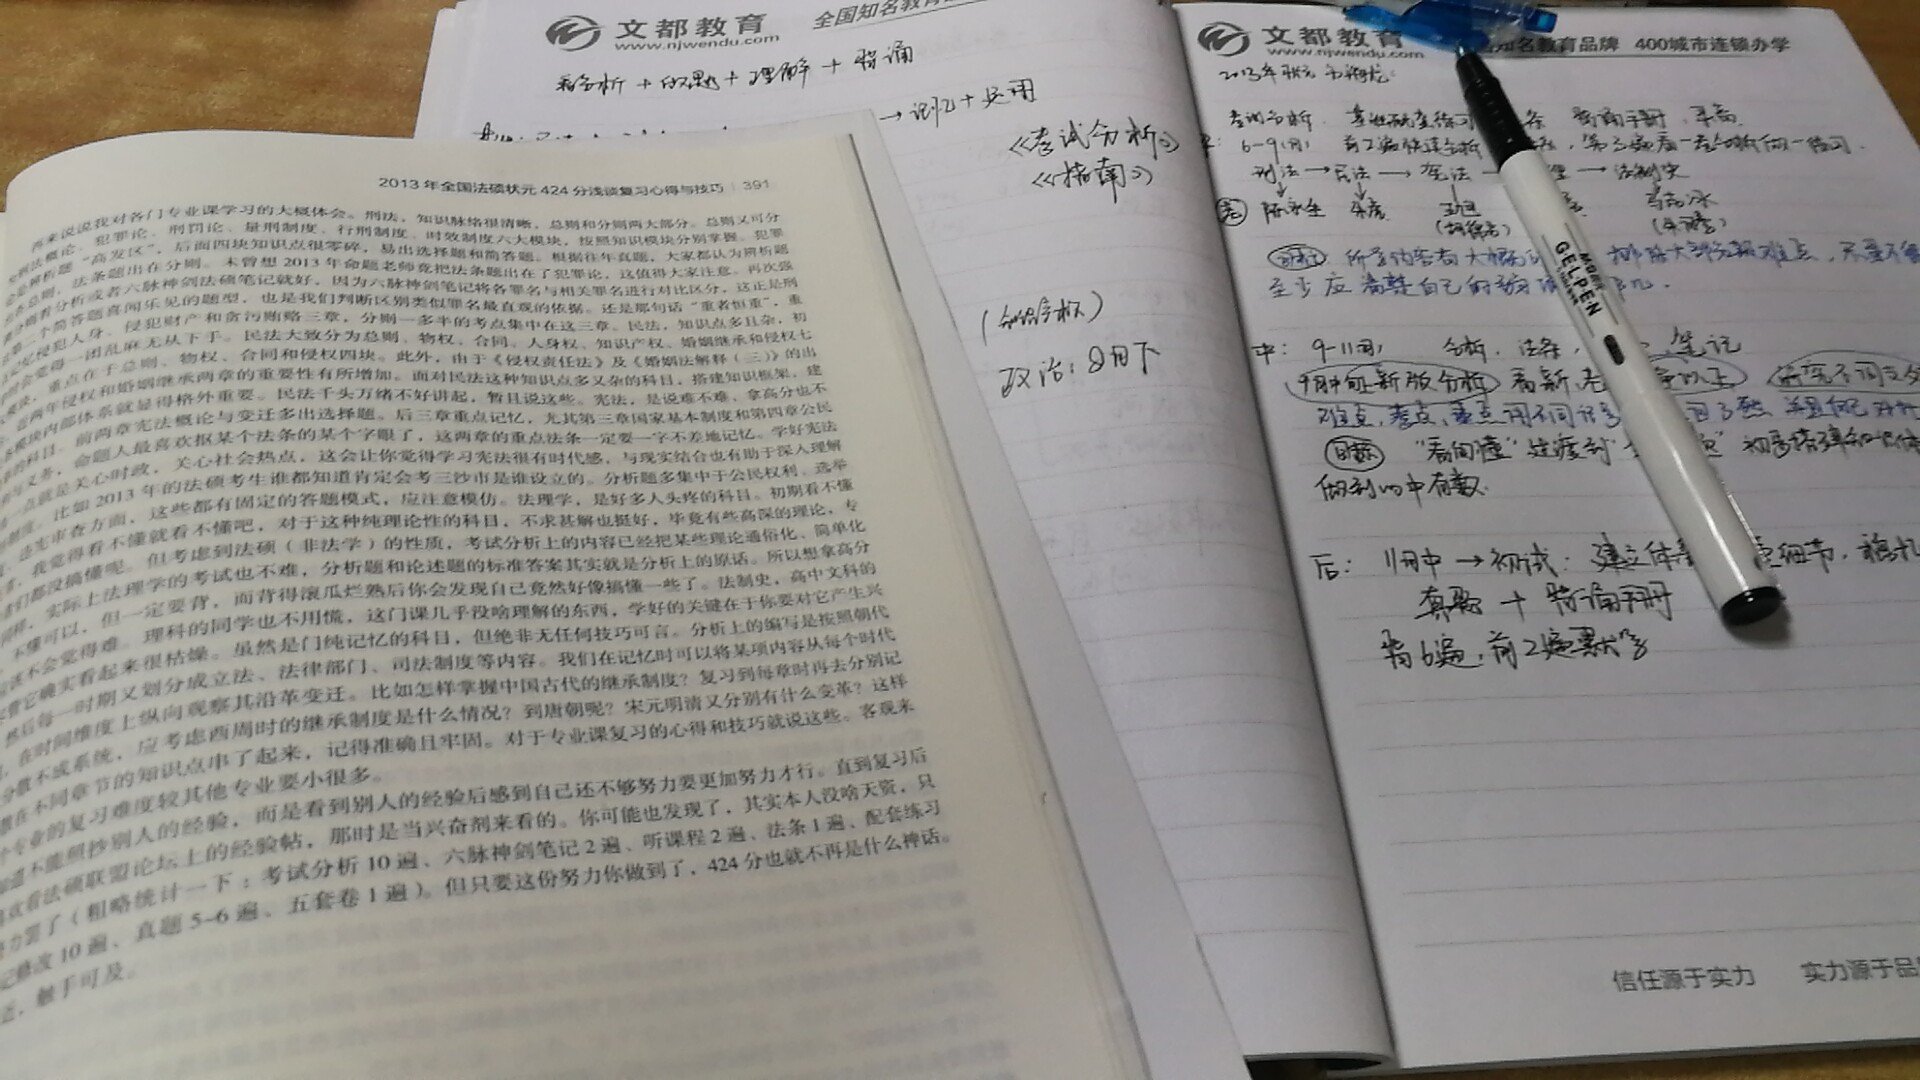 2013年全国法硕状元424分浅谈复习心得与技巧 391
再来说说我对各门专业课学习的大概体会。刑法，知识脉络很清晰，总则和分则两大部分。总则又可分
概论、犯罪论、刑罚论、量刑制度、行刑制度、时效制度六大模块，按照知识模块分别掌握。犯罪
辨析题“高发区”，后面四块知识点很零碎，易出选择题和简答题。根据往年真题，大家都认为辨析题
总则，法条题出在分则。未曾想2013年命题老师竟把法条题出在了犯罪论，这值得大家注意。再次强
看分析或者六脉神剑法硕笔记就好，因为六脉神剑笔记将各罪名与相关罪名进行对比区分，这正是刑
个简答题喜闻乐见的题型，也是我们判断区别类似罪名最直观的依据。还是那句话“重者恒重”，重
侵犯人身、侵犯财产和贪污贿赂三章，分则一多半的考点集中在这三章。民法，知识点多且杂，初
会觉得一团乱麻无从下手。民法大致分为总则、物权、合同、人身权、知识产权、婚姻继承和侵权七
重点在于总则、物权、合同和侵权四块。此外，由于《侵权责任法》及《婚姻法解释（三）》的出
两年侵权和婚姻继承两章的重要性有所增加。面对民法这种知识点多又杂的科目，搭建知识框架，建
模块内部体系就显得格外重要。民法千头万绪不好讲起，暂且说这些。宪法，是说难不难、拿高分也不
的科目。前两章宪法概论与变迁多出选择题。后三章重点记忆，尤其第三章国家基本制度和第四章公民
与义务，命题人最喜欢抠某个法条的某个字眼了，这两章的重点法条一定要一字不差地记忆。学好宪法
一点就是关心时政，关心社会热点，这会让你觉得学习宪法很有时代感，与现实结合也有助于深入理解
比如2013年的法硕考生谁都知道肯定会考三沙市是谁设立的。分析题多集中于公民权利、选举
违宪审查方面，这些都有固定的答题模式，应注意模仿。法理学，是好多人头疼的科目。初期看不懂
我觉得看不懂就看不懂吧，对于这种纯理论性的科目，不求甚解也挺好，毕竟有些高深的理论，专
们都没搞懂呢。但考虑到法硕（非法学）的性质，考试分析上的内容已经把某些理论通俗化、简单化
实际上法理学的考试也不难，分析题和论述题的标准答案其实就是分析上的原话。所以想拿高分
不懂可以，但一定要背，而背得滚瓜烂熟后你会发现自己竟然好像搞懂一些了。法制史，高中文科的
不会觉得难。理科的同学也不用慌，这门课几乎没啥理解的东西，学好的关键在于你要对它产生兴
它确实看起来很枯燥。虽然是门纯记忆的科目，但绝非无任何技巧可言。分析上的编写是按照朝代
然后每一时期又划分成立法、法律部门、司法制度等内容。我们在记忆时可以将某项内容从每个时代
在时间维度上纵向观察其沿革变迁。比如怎样掌握中国古代的继承制度？复习到每章时再去分别记
分散不成系统，应考虑西周时的继承制度是什么情况？到唐朝呢？宋元明清又分别有什么变革？这样
在不同章节的知识点串了起来，记得准确且牢固。对于专业课复习的心得和技巧就说这些。客观来
专业的复习难度较其他专业要小很多。
不能照抄别人的经验，而是看到别人的经验后感到自己还不够努力要更加努力才行。直到复习后
欢看法硕联盟论坛上的经验帖，那时是当兴奋剂来看的。你可能也发现了，其实本人没啥天资，只
力罢了（粗略统计一下：考试分析10遍、六脉神剑笔记2遍、听课程2遍、法条1遍、配套练习
记修改10遍、真题5-6遍、五套卷1遍）。但只要这份努力你做到了，424分也就不再是什么神话。
触手可及。
文都教育 全国知名教育品
www.njwendu.com
看分析＋做题＋理解＋背诵
→记忆＋运用
《考试分析》
《指南》
政治：8月下
文都教育 知名教育品牌 400城市连锁办学
www.njwendu.com
2013年状元
考试分析 背诵手册
6-9(月)
刑法→民法→宪法→ →法制史
目标
至少应
中：9-11(月) 分析，法条， 笔记
9月中旬新版分析
难点，考点，重点用不同记号
目标 “看的懂”过渡到
做到心中有数
后：11月中→初试：建立体 细节，
真题＋背诵手册
背6遍，前2遍默写
信任源于实力 实力源于品
MORN
GELPEN